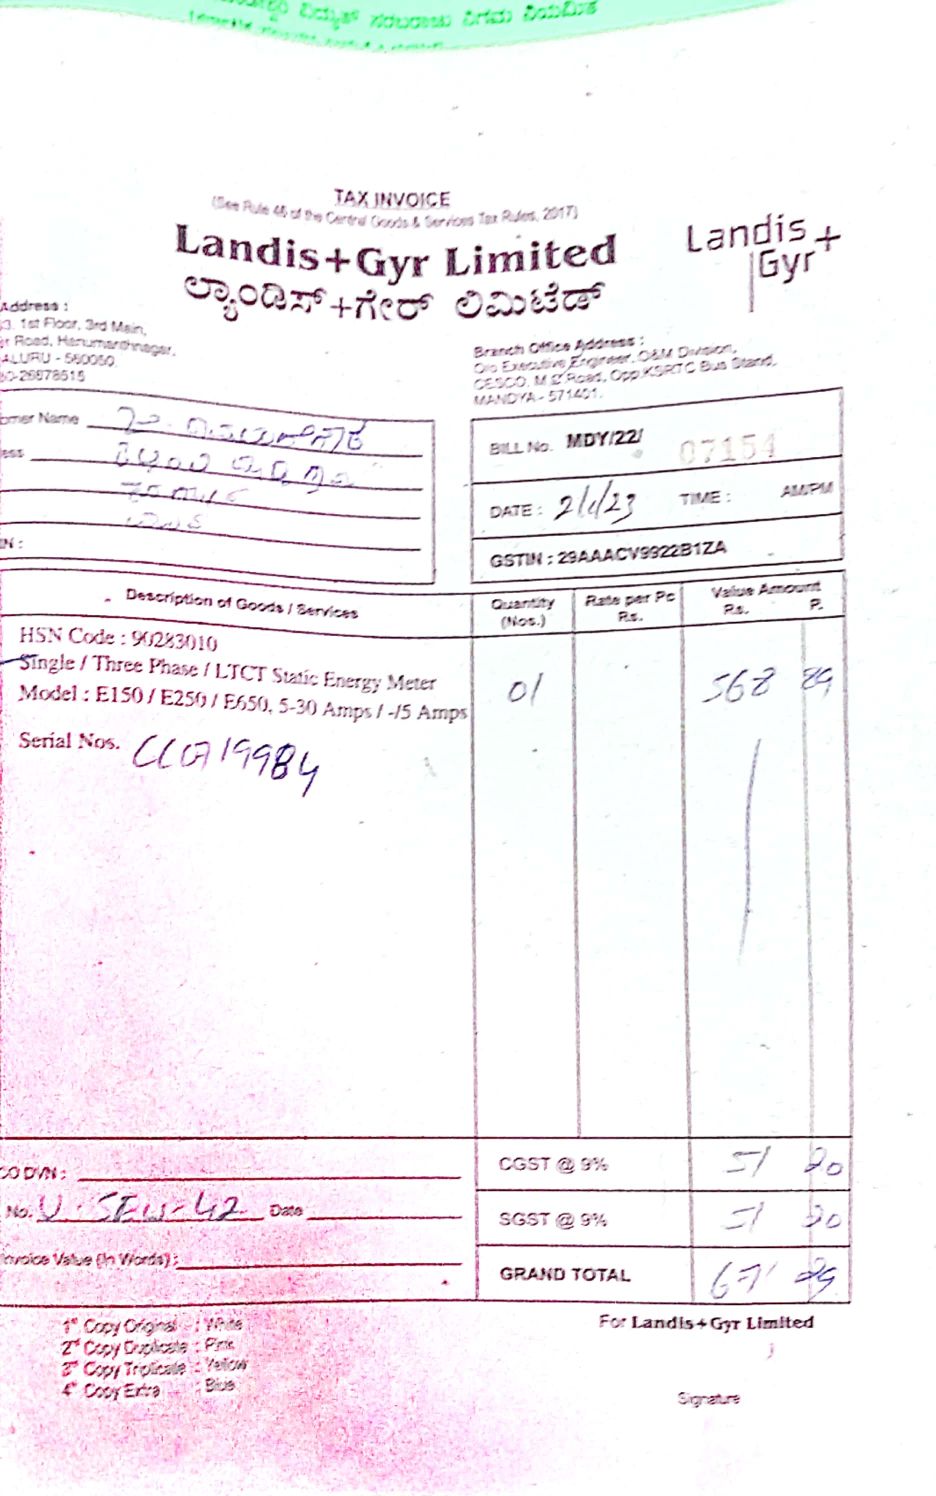 ವಿದ್ಯುತ್ ಸರಬರಾಜು ನಿಗಮ ನಿಯಮಿತ
TAX INVOICE
(See Rule 46 of the Central Goods & Services Tax Rules, 2017)
Landis+Gyr Limited
ಲ್ಯಾಂಡಿಸ್+ಗೇರ್ ಲಿಮಿಟೆಡ್
Landis+
Gyr
Address :
3, 1st Floor, 3rd Main,
r Road, Hanumanthnagar,
ALURU - 560050
0-26678615
Branch Office Address :
O/o Executive Engineer, O&M Division,
CESCO, M.C Road, Opp.KSRTC Bus Stand,
MANDYA - 571401.
omer Name
ess
N :
BILL No. MDY/22/ 07154
DATE : 2/1/23 TIME : AM/PM
GSTIN : 29AAACV9922B1ZA
Description of Goods / Services
Quantity
(Nos.)
Rate per Pc
Rs.
Value Amount
Rs. P.
HSN Code : 90283010
Single / Three Phase / LTCT Static Energy Meter
Model : E150 / E250 / E650, 5-30 Amps / -/5 Amps
01 568 89
Serial Nos.
CO DVN :
No. Date
nvoice Value (In Words) :
CGST @ 9% 51 20
SGST @ 9% 51 20
GRAND TOTAL 671 29
1st Copy Original : White
2nd Copy Duplicate : Pink
3rd Copy Triplicate : Yellow
4th Copy Extra : Blue
For Landis+Gyr Limited
Signature